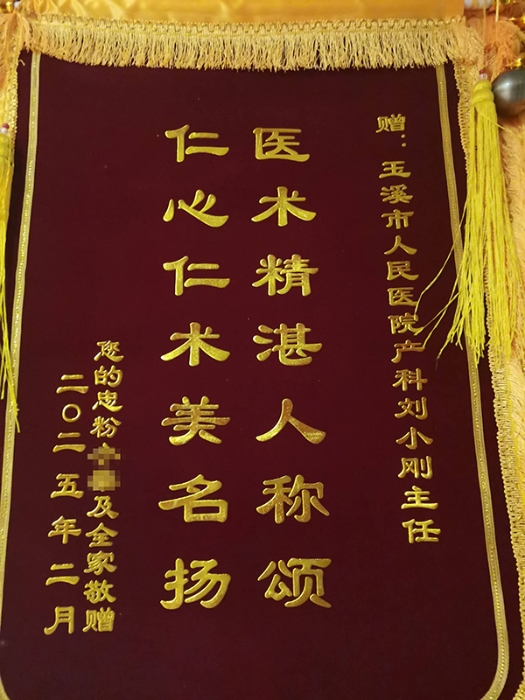 赠：玉溪市人民医院产科刘小刚主任
医术精湛人称颂
仁心仁术美名扬
您的忠粉及全家敬赠
二〇二五年二月